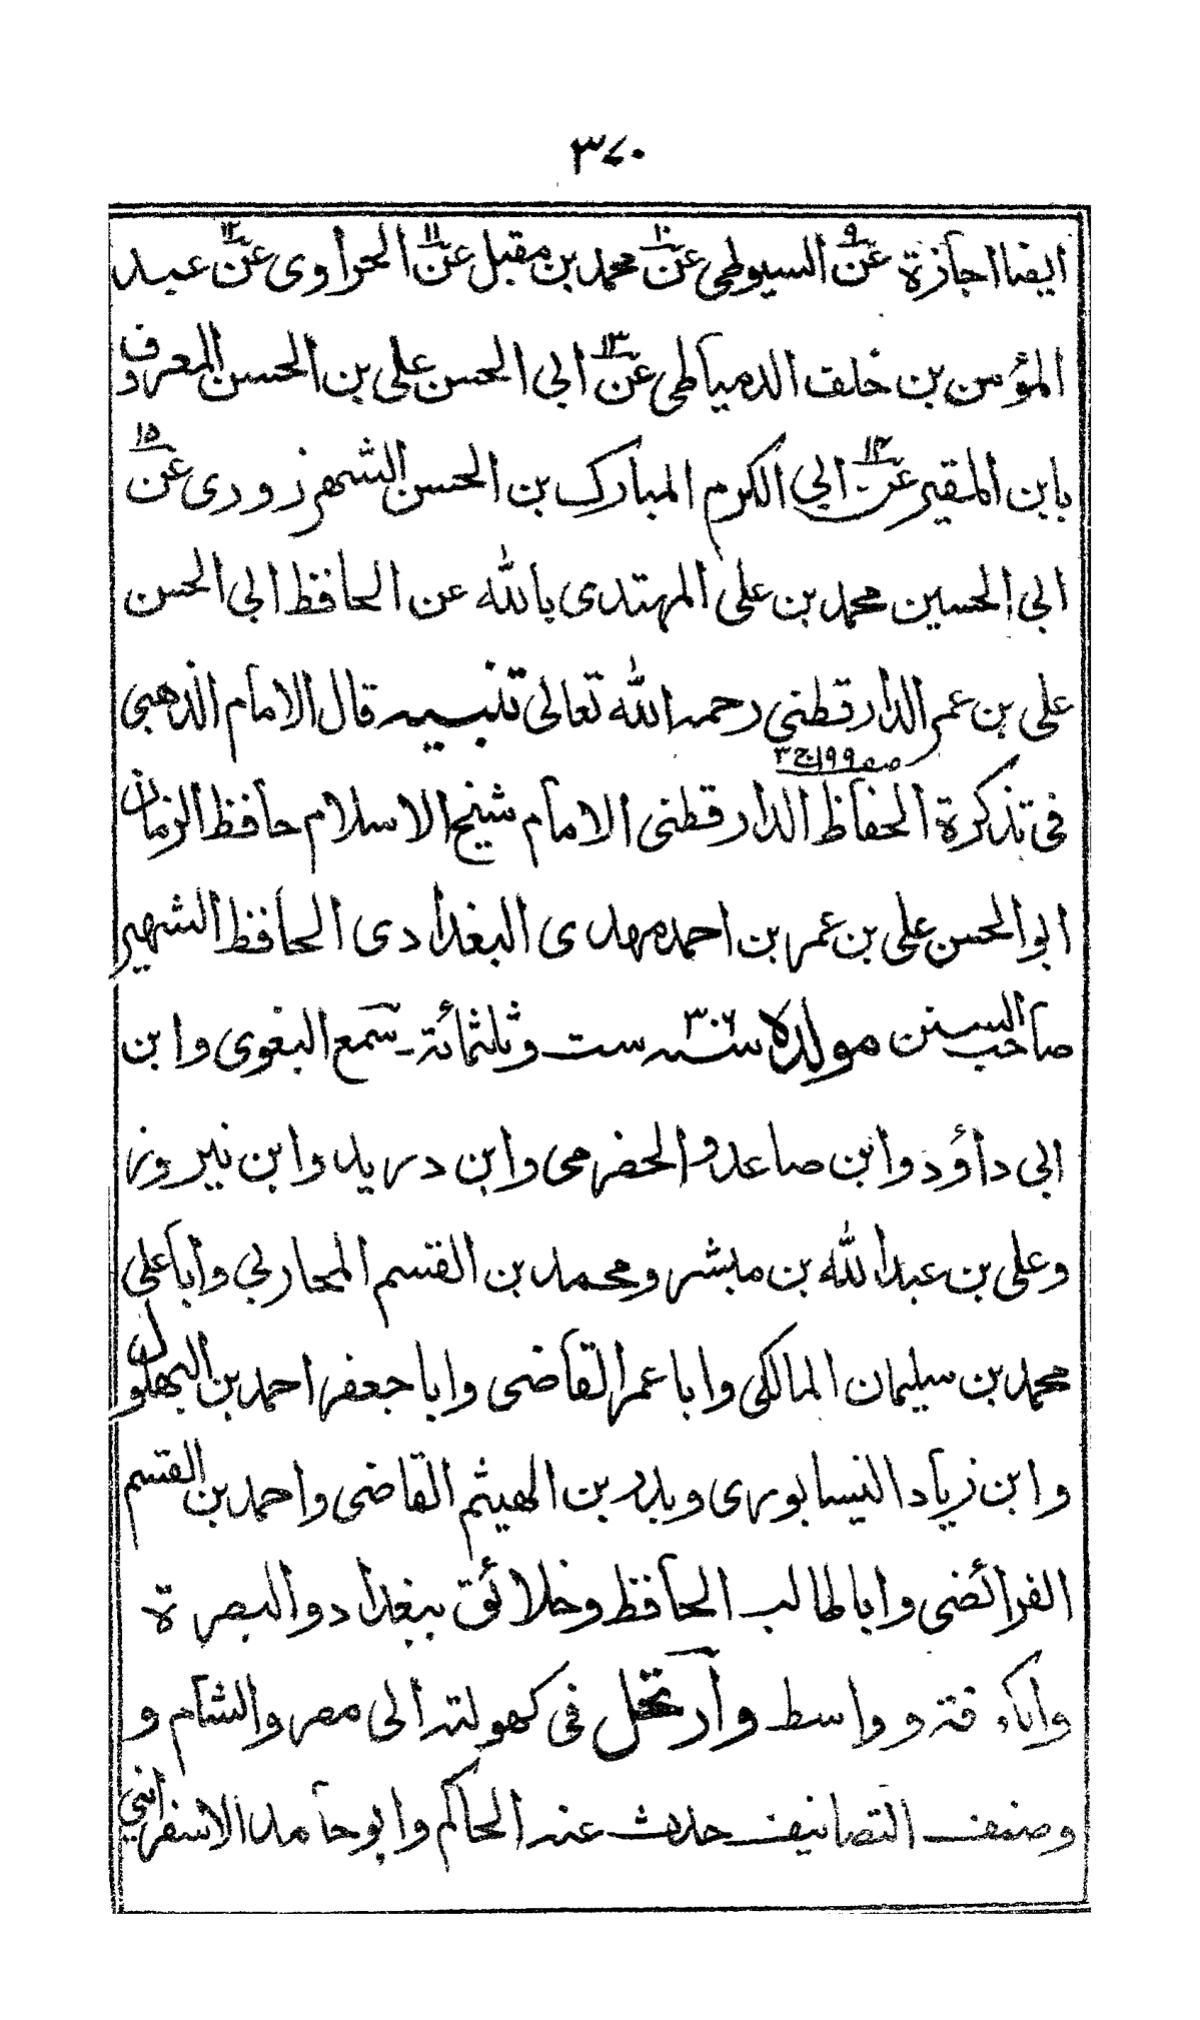 ٣٧٠
ايضا اجازة عن٩ السيوطى عن١٠ محمد بن مقبل عن١١ الحراوى عن١٢ عبد
المؤمن بن خلف الدمياطى عن١٣ ابى الحسن على بن الحسن المعروف
بابن المقير عن١٤ ابي الكرم المبارك بن الحسن الشهرزورى عن١٥
ابى الحسين محمد بن على المهتدى بالله عن الحافظ ابى الحسن
على بن عمر الدارقطني رحمه الله تعالى تنبيه قال الامام الذهبى
ص١٩٩ج٣
فى تذكرة الحفاظ الدارقطنى الامام شيخ الاسلام حافظ الزمان
ابوالحسن على بن عمر بن احمد مهدى البغدادى الحافظ الشهير
صاحب السنن مولده سنه ٣٠٦ ست وثلثمائة ـ سمع البغوى وابن
ابى داؤد وابن صاعد والحضرمى وابن دريد وابن نيروز
وعلى بن عبدالله بن مبشر ومحمد بن القسم المحاربي واباعلى
محمد بن سليمان المالكى وابا عمر القاضى وابا جعفر احمد بن البهلول
وابن زياد النيسابورى وبدر بن الهيثم القاضى واحمد بن القسم
الفرائضى واباطالب الحافظ وخلائق ببغداد والبصرة
والكوفة وواسط وارتحل فى كهولته الى مصر والشام و
وصنف التصانيف حدث عنه الحاكم وابوحامد الاسفرائني